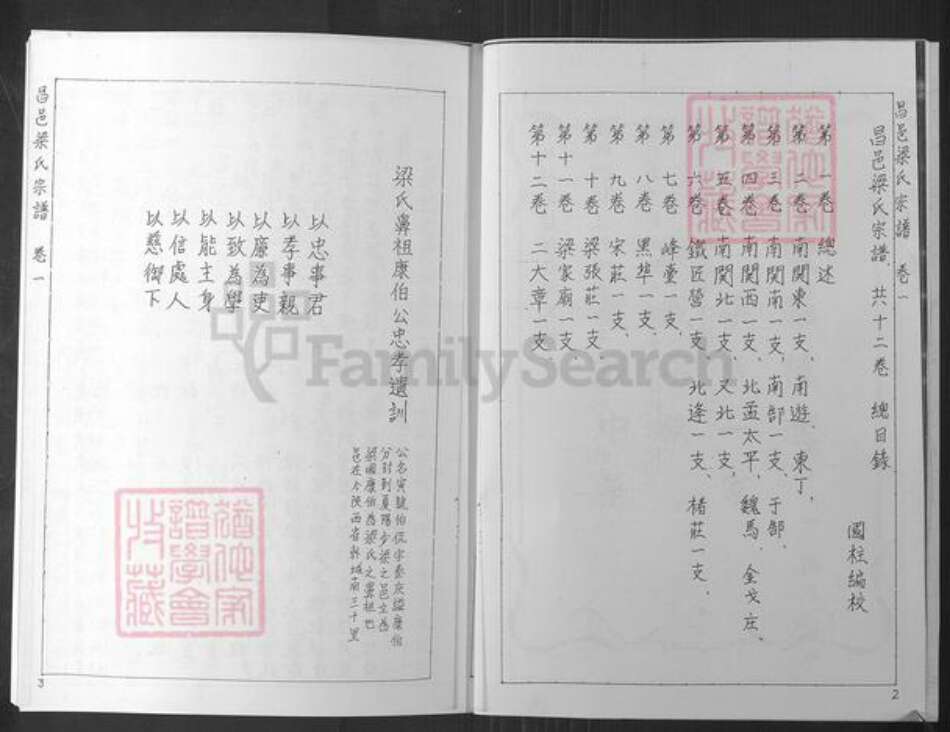 昌邑梁氏宗譜 卷一
昌邑梁氏宗譜 共十二卷 總目錄
國柱編校
第一卷 總述
第二卷 南関東一支、南遊、東丁、
第三卷 南関南一支、南部一支、于部、
第四卷 南関西一支、北孟太平、魏馬、金戈庄、
第五卷 南関北一支、又北一支、
第六卷 鐵匠營一支、北逄一支、楮莊一支、
第七卷 峰臺一支、
第八卷 黑埠一支、
第九卷 宋莊一支、
第十卷 梁張莊一支
第十一卷 梁家廟一支、
第十二卷 二大章一支、
2
梁氏鼻祖康伯公忠孝遺訓
公名寅號伯侃宗秦灰謚康伯
分封到夏陽少梁之邑立為
梁國康伯為梁氏之鼻祖也
邑在今陝西省韓城南二十里
以忠事君
以孝事親
以廉為吏
以致為學
以能主身
以信處人
以慈御下
昌邑梁氏宗譜 卷一
3
譜學會
收藏
譜學會
收藏
FamilySearch